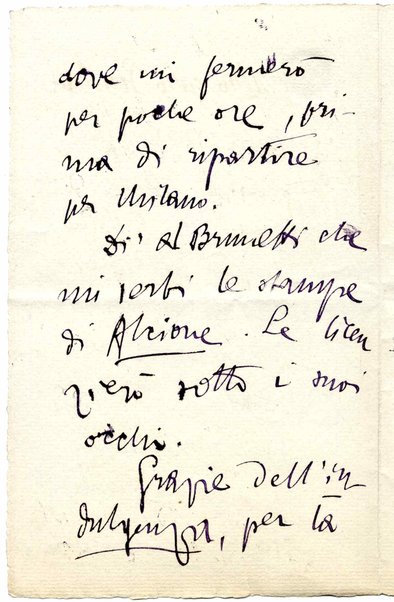 dove mi fermerò
per poche ore, pri-
ma di ripartire
per Milano.
Di' al Brunetti che
mi serbi le stampe
di Alcione. Le licen
zierò sotto i suoi
occhi.
Grazie dell'in
dulgenza, per la